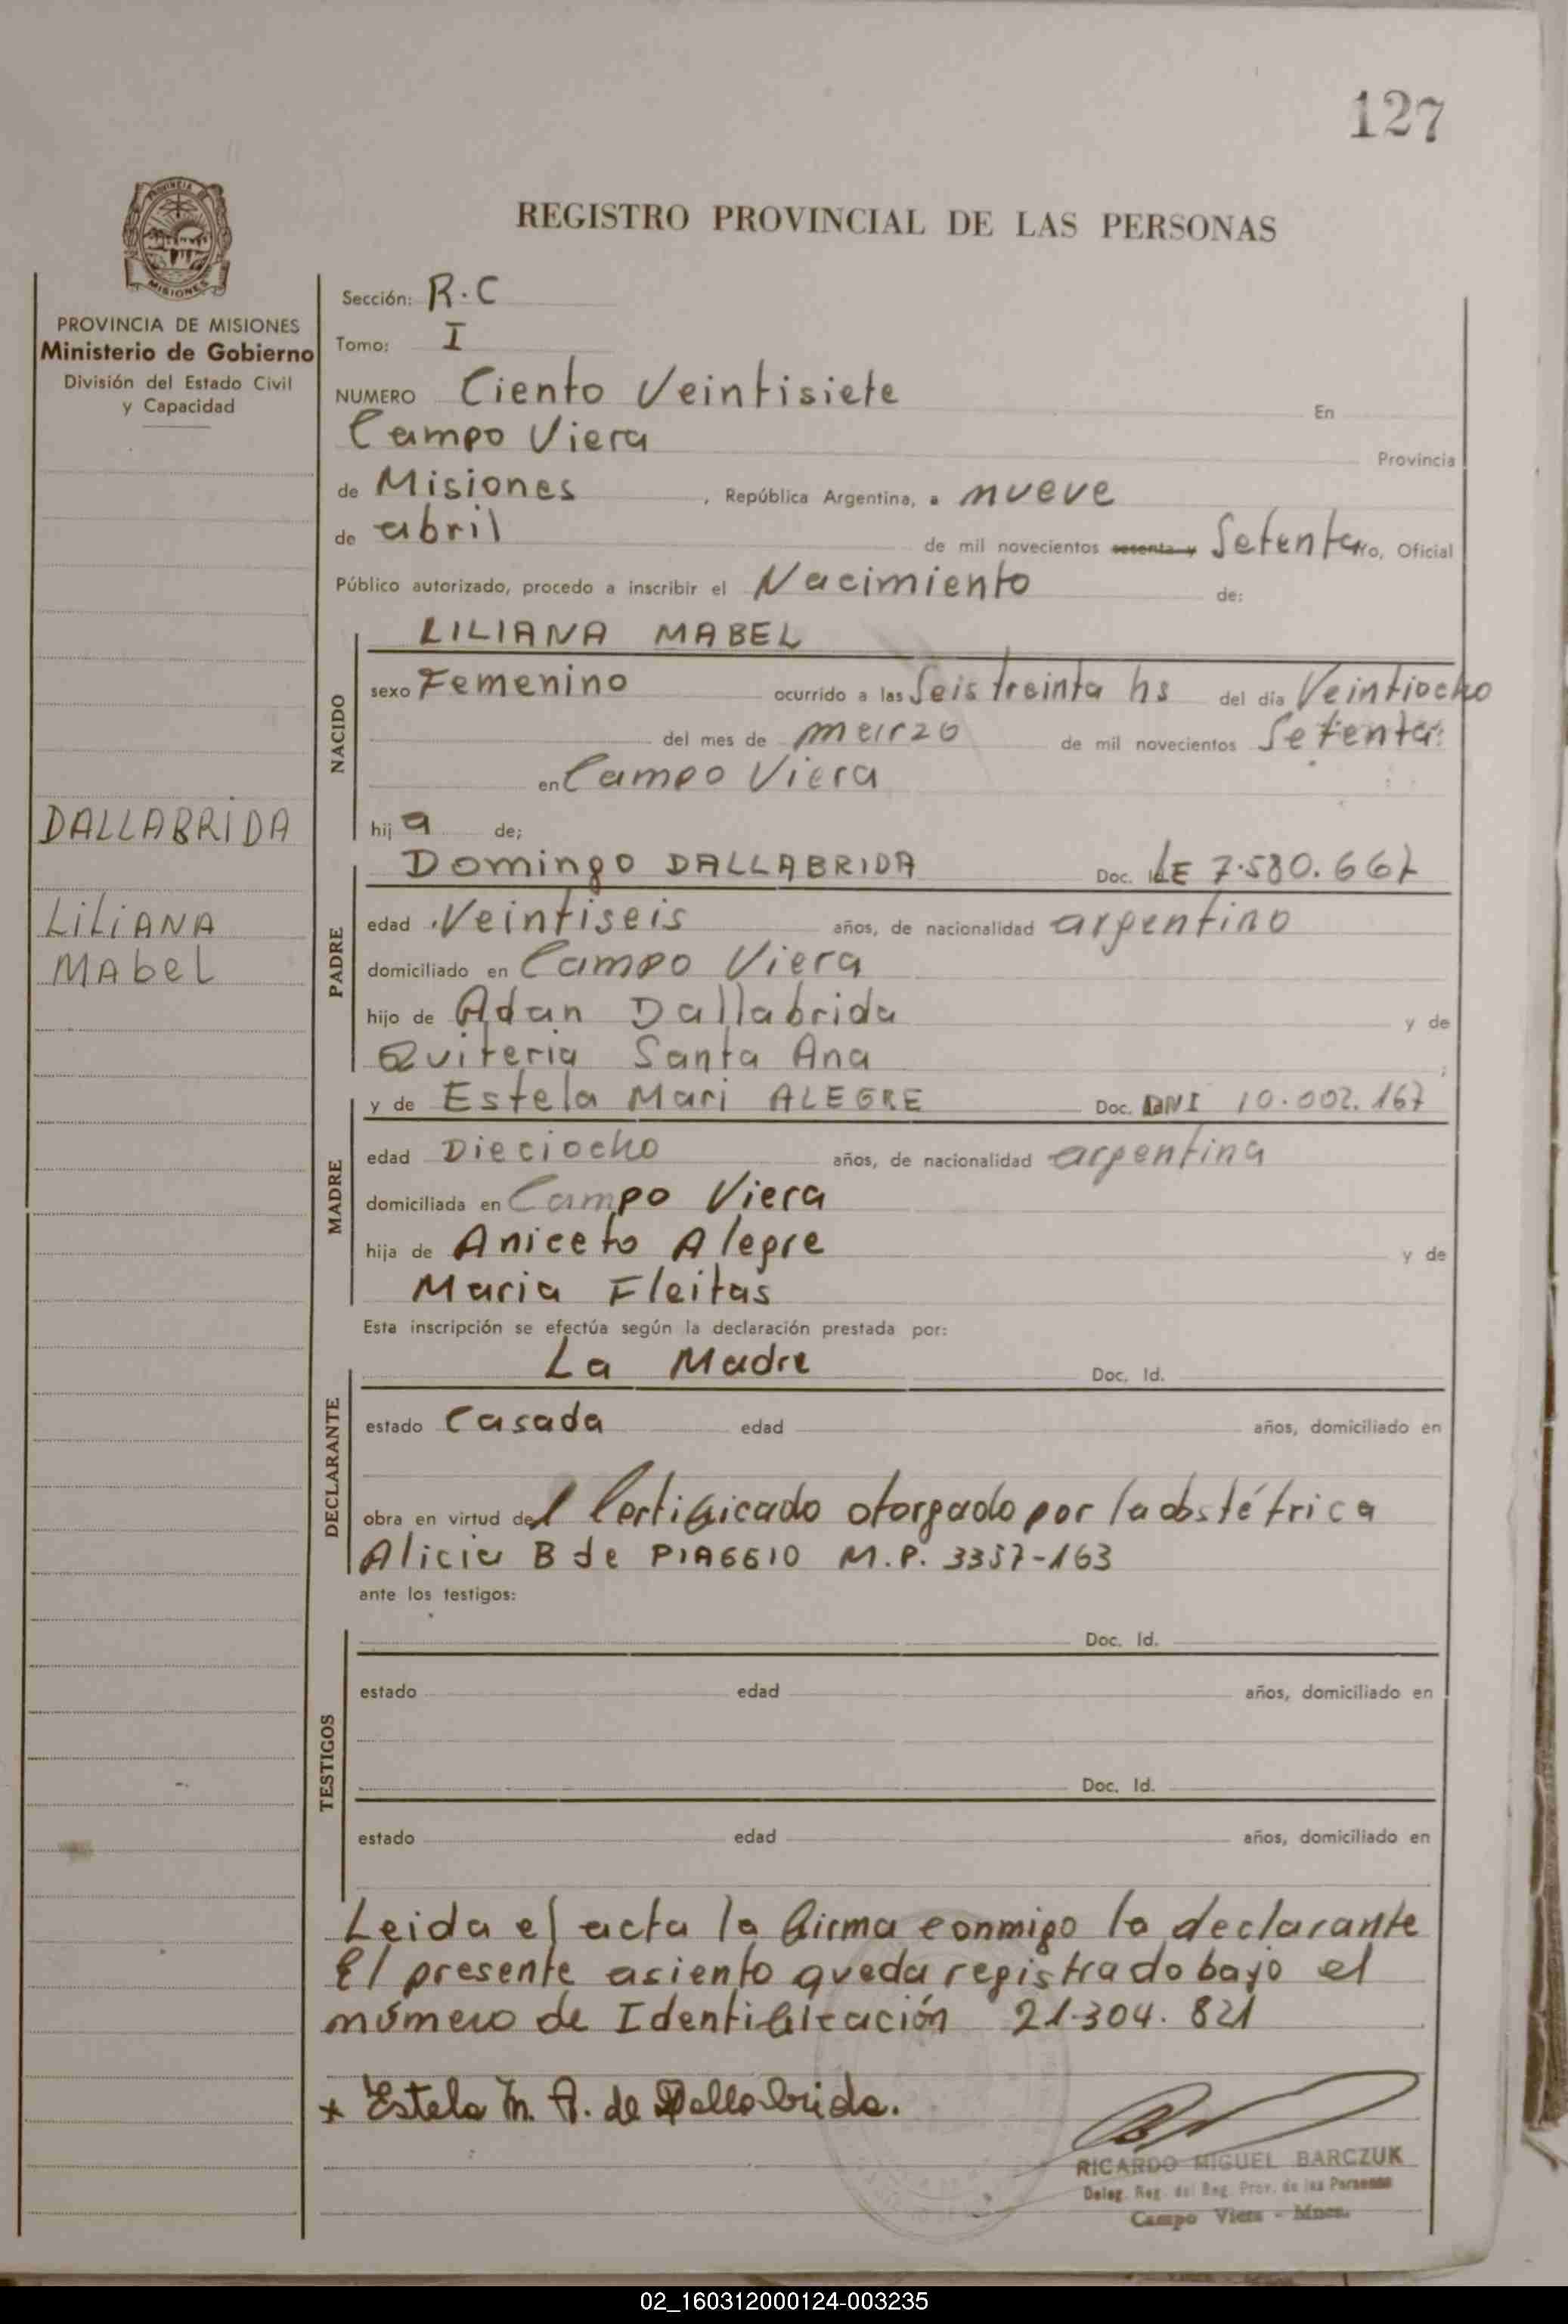 127
PROVINCIA DE
MISIONES
REGISTRO PROVINCIAL DE LAS PERSONAS
PROVINCIA DE MISIONES
Ministerio de Gobierno
División del Estado Civil
y Capacidad
DALLABRIDA
LILIANA
MAbeL
Sección: R.C
Tomo: I
NUMERO Ciento Veintisiete En
Campo Viera Provincia
de Misiones , República Argentina, a nueve
de abril de mil novecientos sesenta y Setenta yo, Oficial
Público autorizado, procedo a inscribir el Nacimiento de:
NACIDO
LILIANA MABEL
sexo Femenino ocurrido a las Seis treinta hs del día Veintiocho
del mes de marzo de mil novecientos Setenta
en Campo Viera
hij a de;
PADRE
Domingo DALLABRIDA Doc. LE 7.580.667
edad Veintiseis años, de nacionalidad argentino
domiciliado en Campo Viera
hijo de Adan Dallabrida y de
Quiteria Santa Ana ;
MADRE
y de Estela Mari ALEGRE Doc. DNI 10.002.167
edad Dieciocho años, de nacionalidad argentina
domiciliada en Campo Viera
hija de Aniceto Alegre y de
Maria Fleitas
Esta inscripción se efectúa según la declaración prestada por:
DECLARANTE
La Madre Doc. Id.
estado Casada edad años, domiciliado en
obra en virtud del Certificado otorgado por la obstétrica
Alicia B de PIAGGIO M.P. 3357-163
ante los testigos:
TESTIGOS
Doc. Id.
estado edad años, domiciliado en
Doc. Id.
estado edad años, domiciliado en
Leida el acta la firma conmigo la declarante
El presente asiento queda registrado bajo el
número de Identificación 21.304.821
x Estela M. A. de Dallabrida.
RICARDO MIGUEL BARCZUK
Deleg. Reg. del Reg. Prov. de las Personas
Campo Viera - Mnes.
02_160312000124-003235